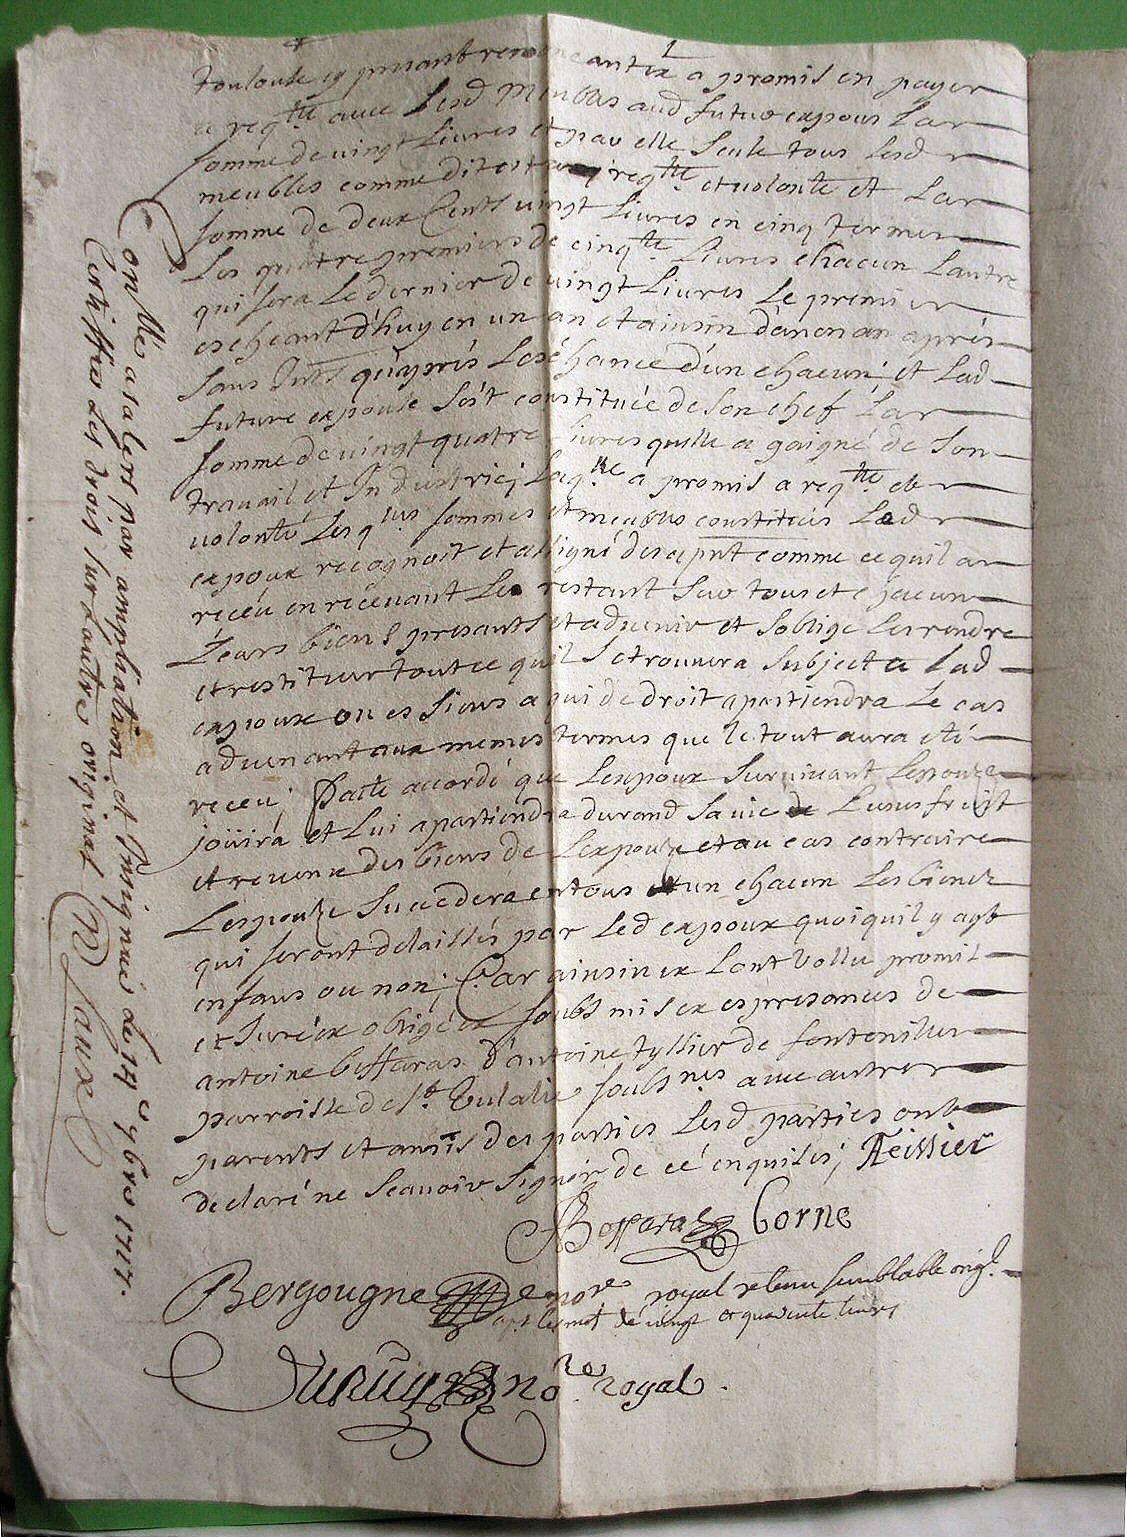 toulouse y presant renonceantz a promis en payer
a reqte avec lesd meubles aud futur expoux lar
somme de vingt livres et par elle seule tous lesd
meubles comme dit est a reqte et volonte et lar
somme de deux Cents vingt livres en cinq termes
Les quatre premiers de cinqte livres chacun lautre
qui sera le dernier de vingt livres le premier
escheant d'huy en un an et ainsin d'an en an apres
sans qu'apres l'eschance d'un chacun; et lad
future expouse s'est constituée de son chef lar
somme de vingt quatre livres quelle a gaigné de son
travail et Industrie; laqlle a promis a reqte et
volonté Lesqlles sommes et meubles constitués Led
expoux recognoit et assigne des a pnt comme ce quil a
receu en recevant le restant sur tous et chacun
Leurs biens presants et advenir et soblige les rendre
et restituer tout ce quil se trouvera subject a lad
expouze ou es siens a qui de droit apartiendra le cas
advenant aux memes termes que le tout aura eté
receu; Pacte accordé que lexpoux survivant lexpouze
jouira et lui apartiendra durand sa vie de lusufruit
et revenu des biens de lexpouze et au cas contraire
Lexpouze succedera en tous et un chacun les biens
qui seront delaissés par led expoux quoiquil y ayt
enfans ou non; Car ainsin ex lont vollu promis
et juré ex obligé ex soubsmis ex es presances de
antoine boffaras d'antoine tyssier de fontenilles
parroisse de Ste Eulalie soubsnes avec autres
parents et amis des parties lesd parties ont
declaré ne scavoir signer de ce enquises; ATeissier
Boffaras Borne
Bergougne nore royal retenu semblable origl
ap le mot de vingt et quarante livres
Duruy nore royal.
Conlle a salers par ampliation et Insignué le 14e 9bre 1717.
Certiffiés les droits sur lautre original
Sauxe